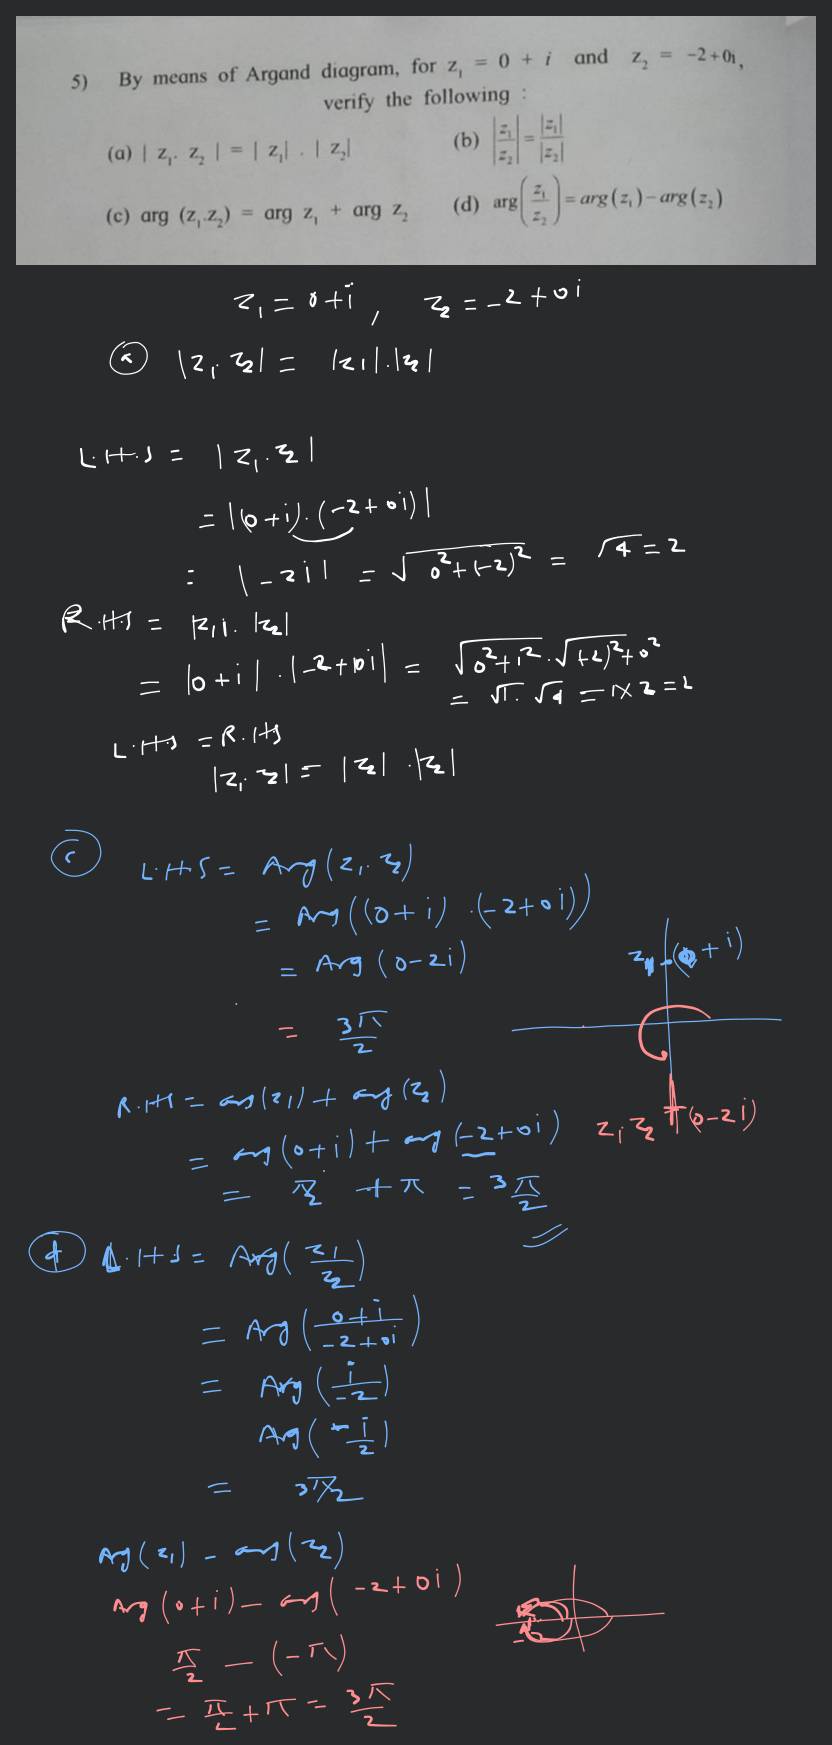 5) By means of Argand diagram, for z₁ = 0 + i and z₂ = -2+0i,
verify the following :
(a) | z₁. z₂ | = | z₁| . | z₂|
(b) |z₁/z₂| = |z₁|/|z₂|
(c) arg (z₁.z₂) = arg z₁ + arg z₂
(d) arg(z₁/z₂) = arg(z₁)-arg(z₂)
z₁ = 0+i , z₂ = -2+0i
(a) |z₁. z₂| = |z₁|.|z₂|
L.H.S = |z₁. z₂|
= |(0+i).(-2+0i)|
= |-2i| = √(0²+(-2)²) = √4 = 2
R.H.S = |z₁|. |z₂|
= |0+i| . |-2+0i| = √(0²+1²) . √((-2)²+0²)
= √1. √4 = 1×2 = 2
L.H.S = R.H.S
|z₁. z₂| = |z₂| . |z₂|
(c) L.H.S = Arg(z₁. z₂)
= Arg((0+i) .(-2+0i))
= Arg (0-2i)
z₁ (0+i)
= 3π/2
R.H.S = arg(z₁) + arg(z₂)
z₁ z₂ (0-2i)
= arg(0+i) + arg(-2+0i)
= π/2 + π = 3π/2
(d) L.H.S = Arg(z₁/z₂)
= Arg((0+i)/(-2+0i))
= Arg(i/-2)
Arg(-i/2)
= 3π/2
Arg(z₁) - arg(z₂)
Arg(0+i) - arg(-2+0i)
π/2 - (-π)
= π/2 + π = 3π/2